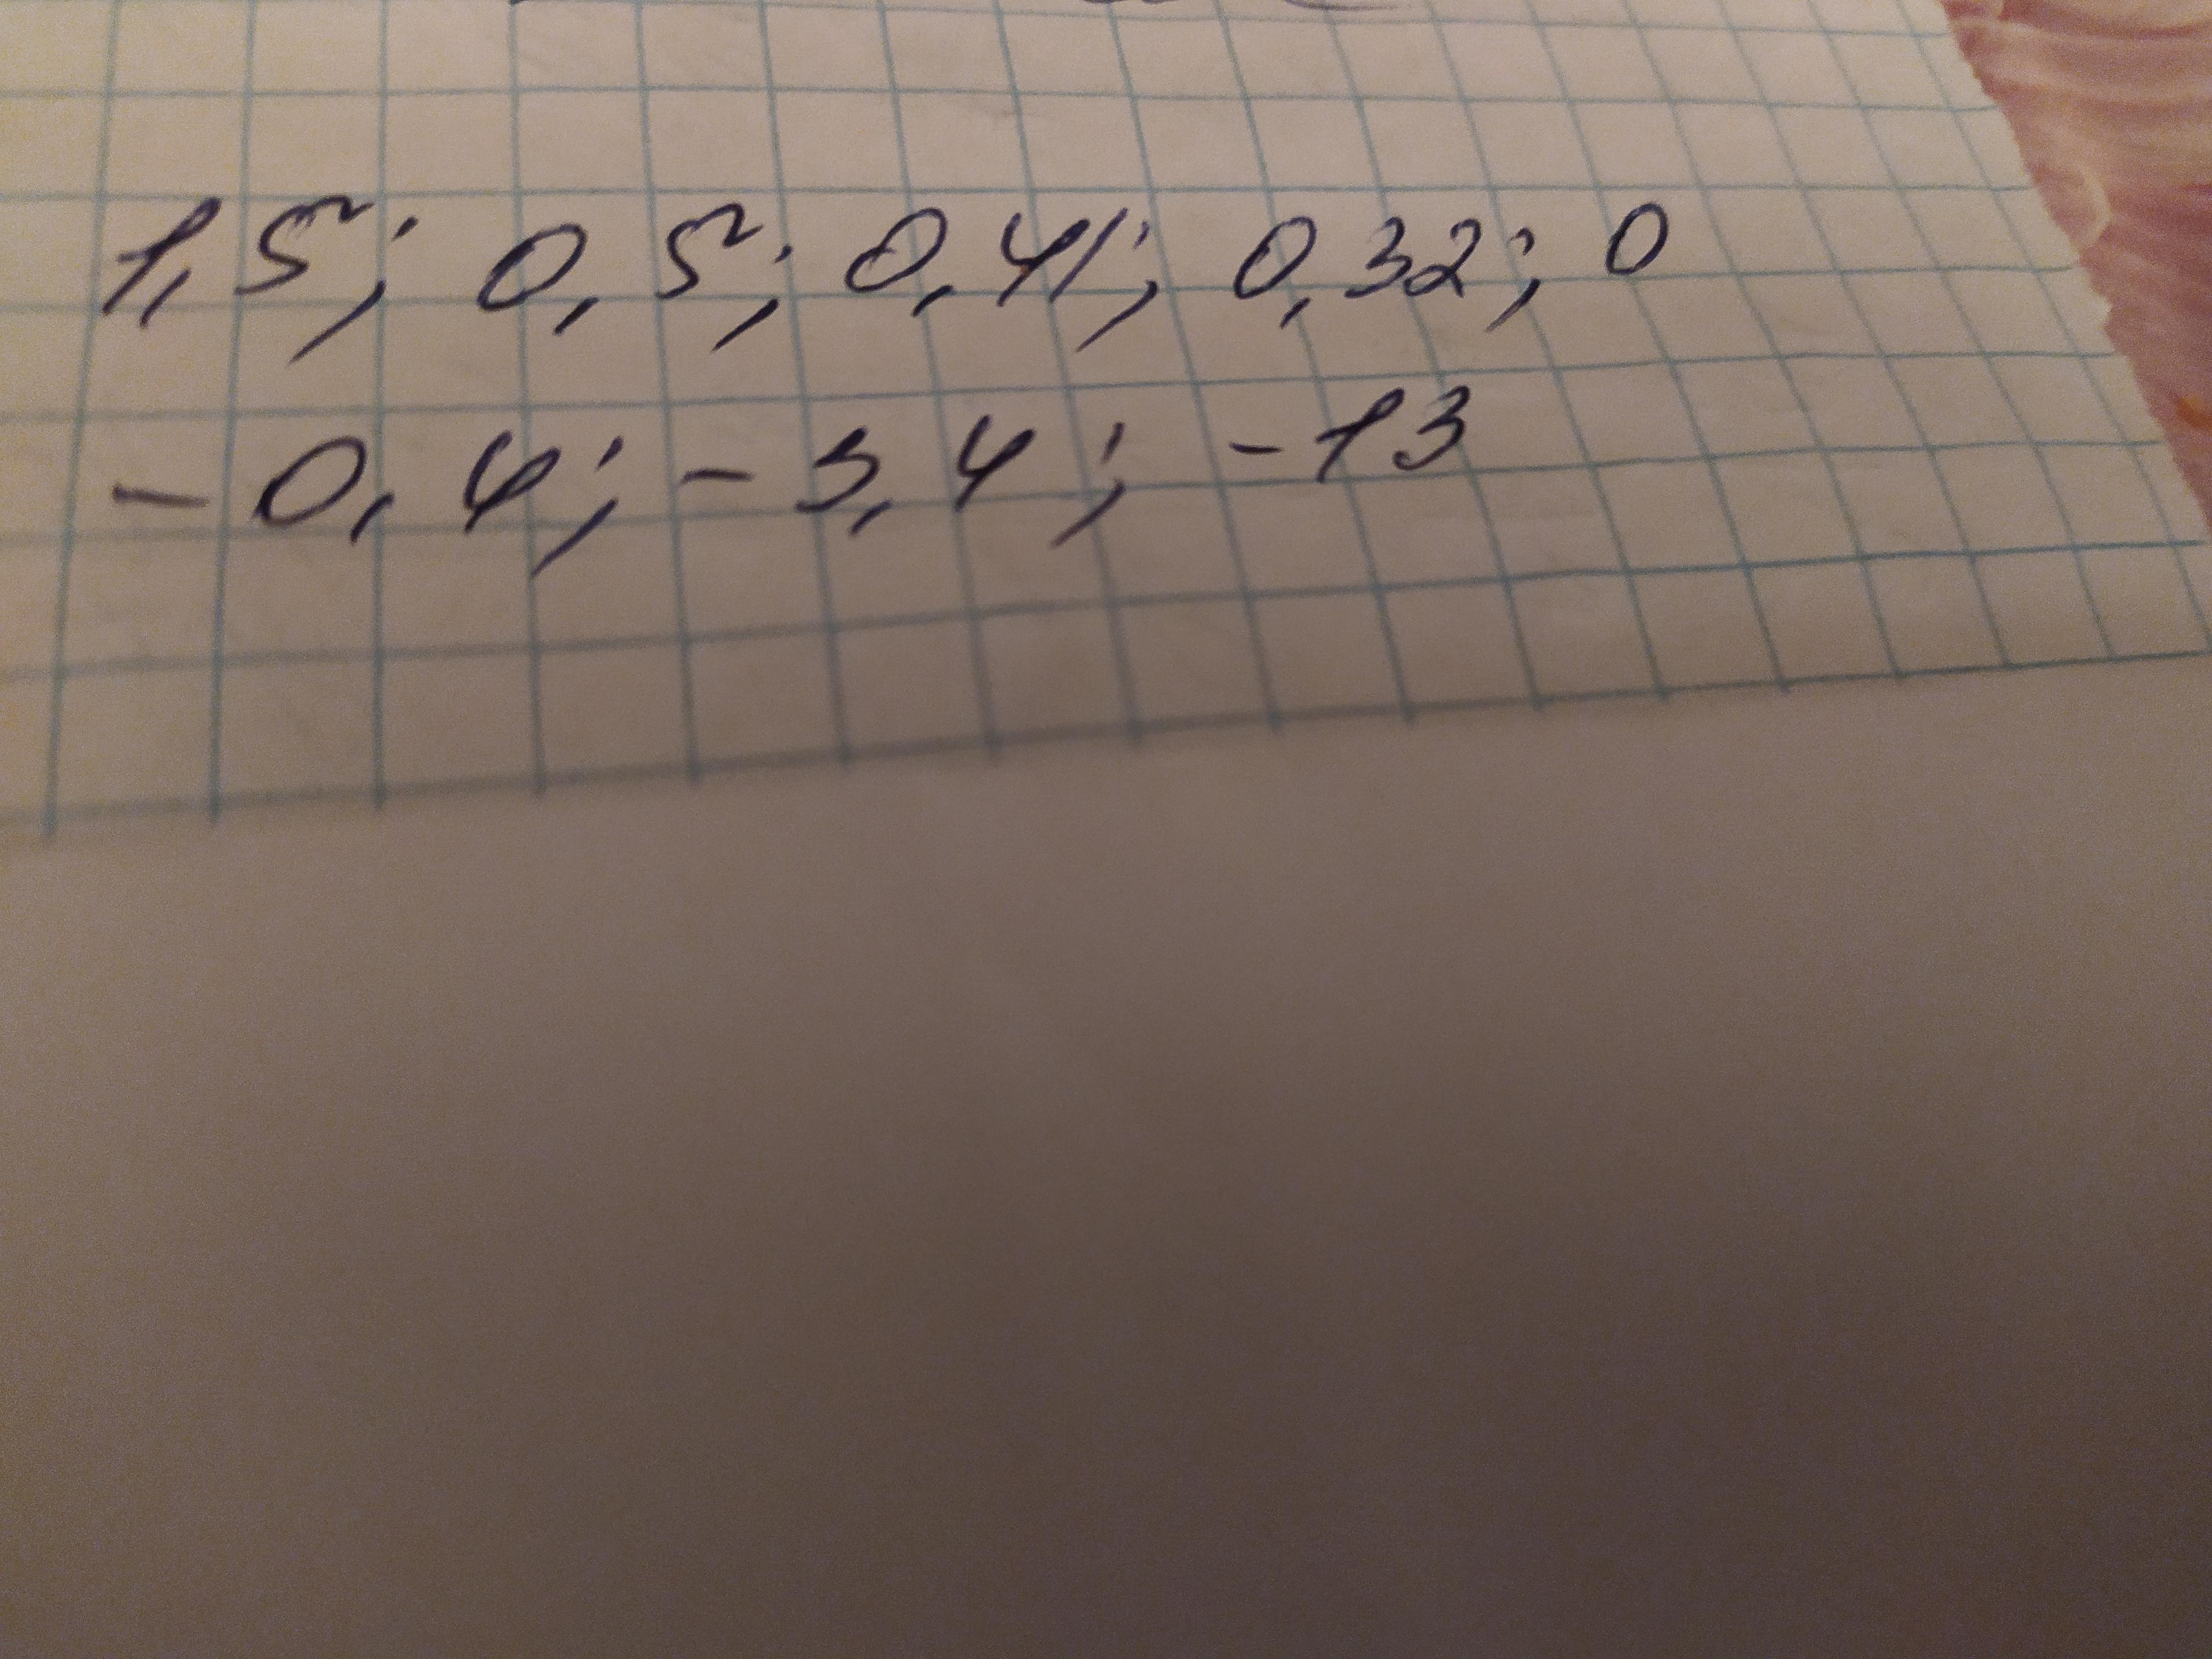 1,5; 0,5; 0,41; 0,32; 0
-0,4; -3,4; -13